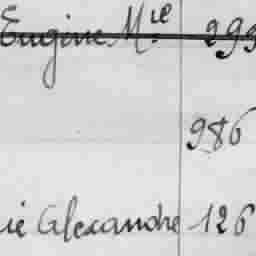 Eugène M.ie 299
986
ie Alexandre 126